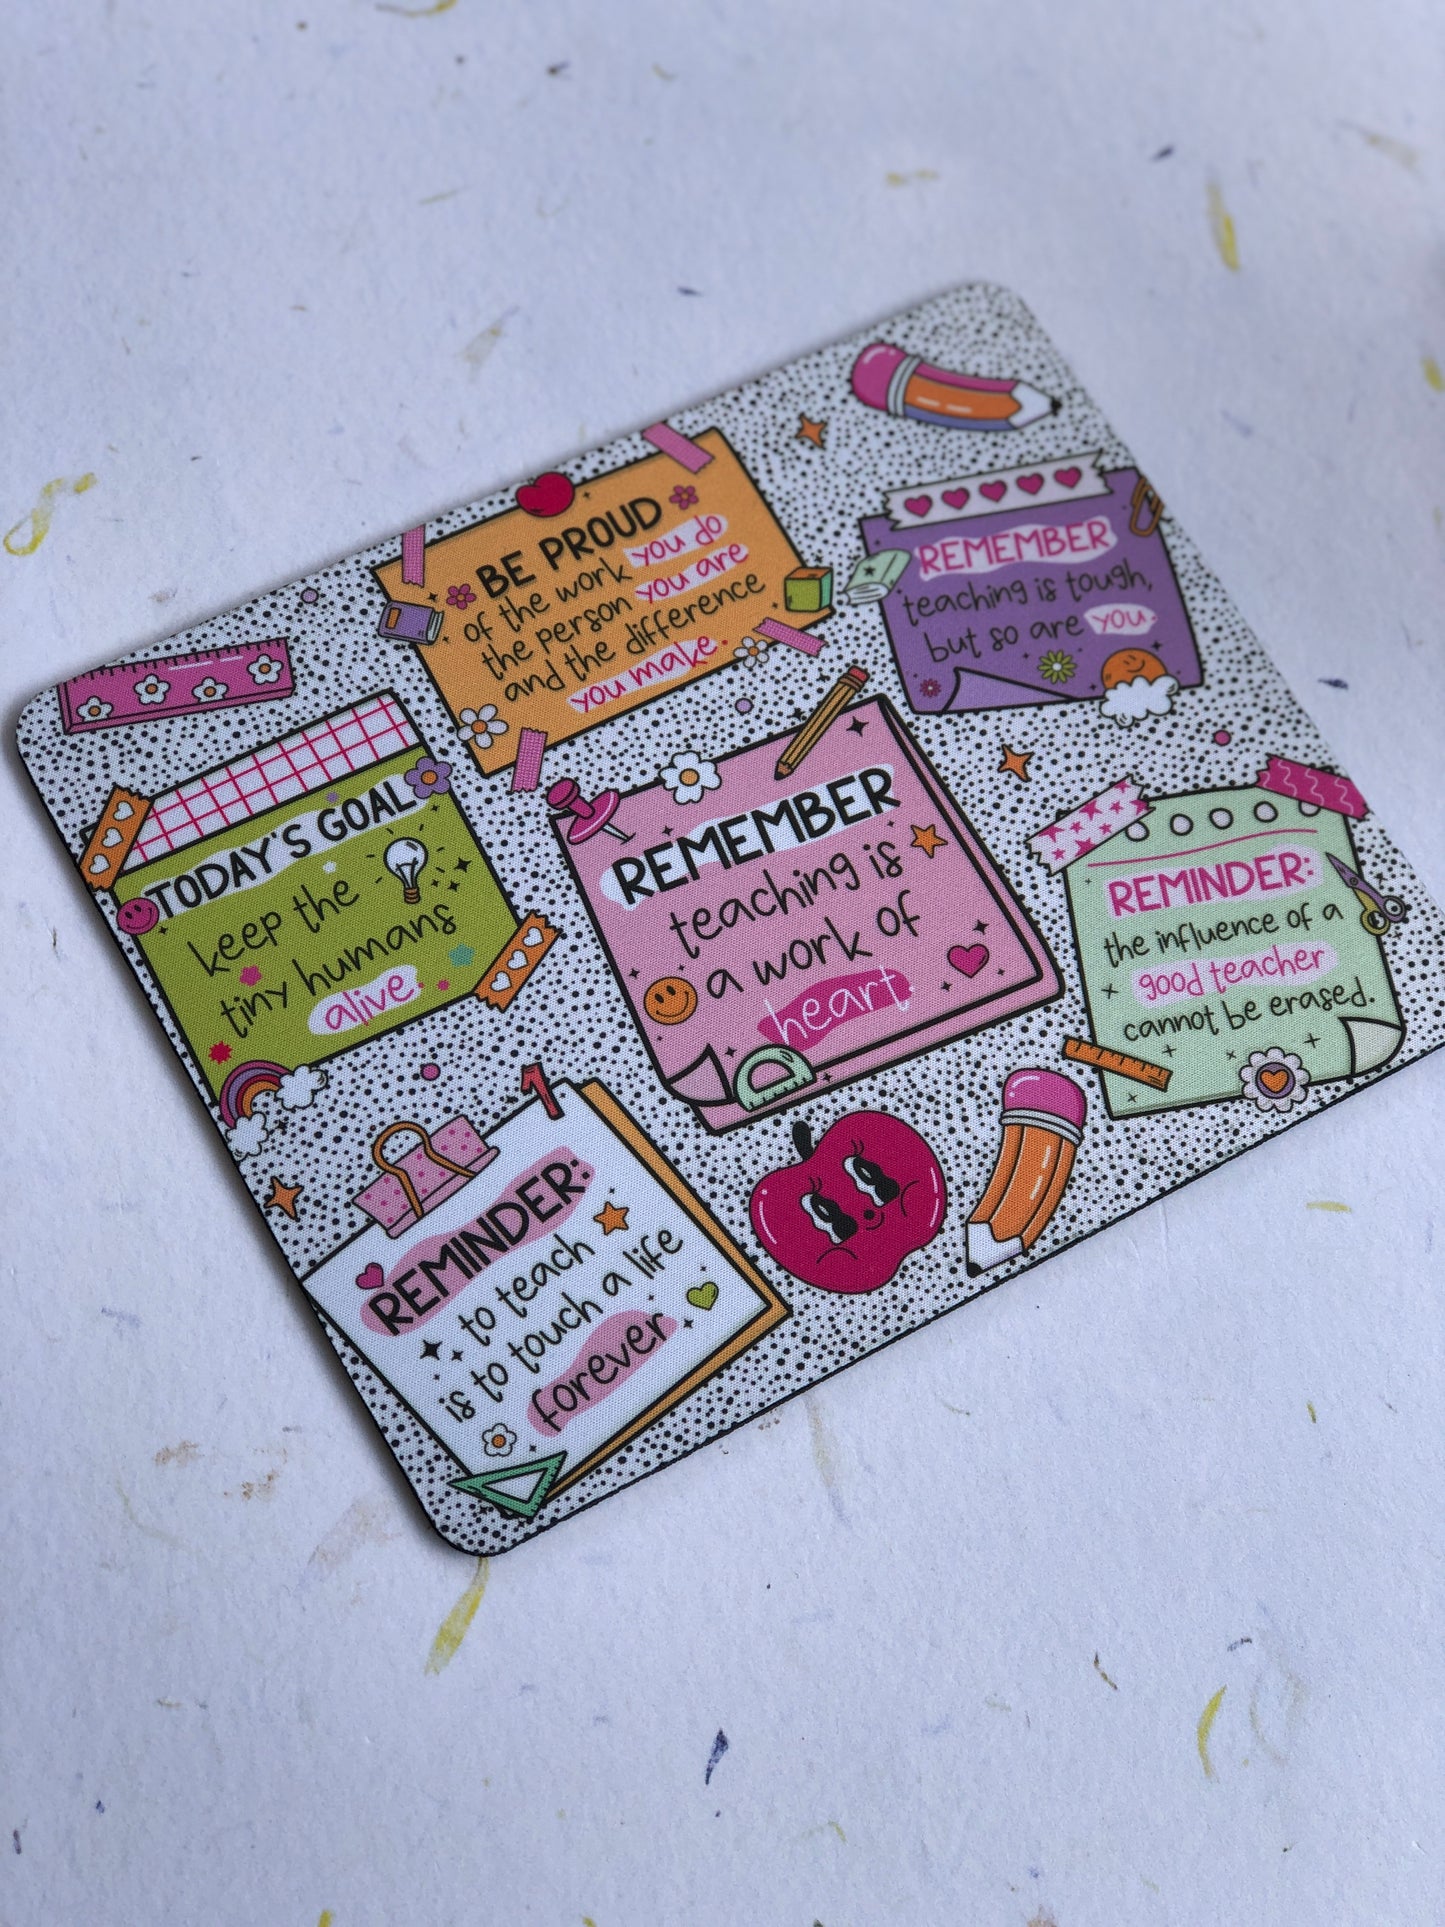 BE PROUD
of the work you do
the person you are
and the difference
you make.
REMEMBER
teaching is tough,
but so are you.
TODAY'S GOAL
keep the
tiny humans
alive.
REMEMBER
teaching is
a work of
heart.
REMINDER:
the influence of a
good teacher
cannot be erased.
REMINDER:
to teach
is to touch a life
forever